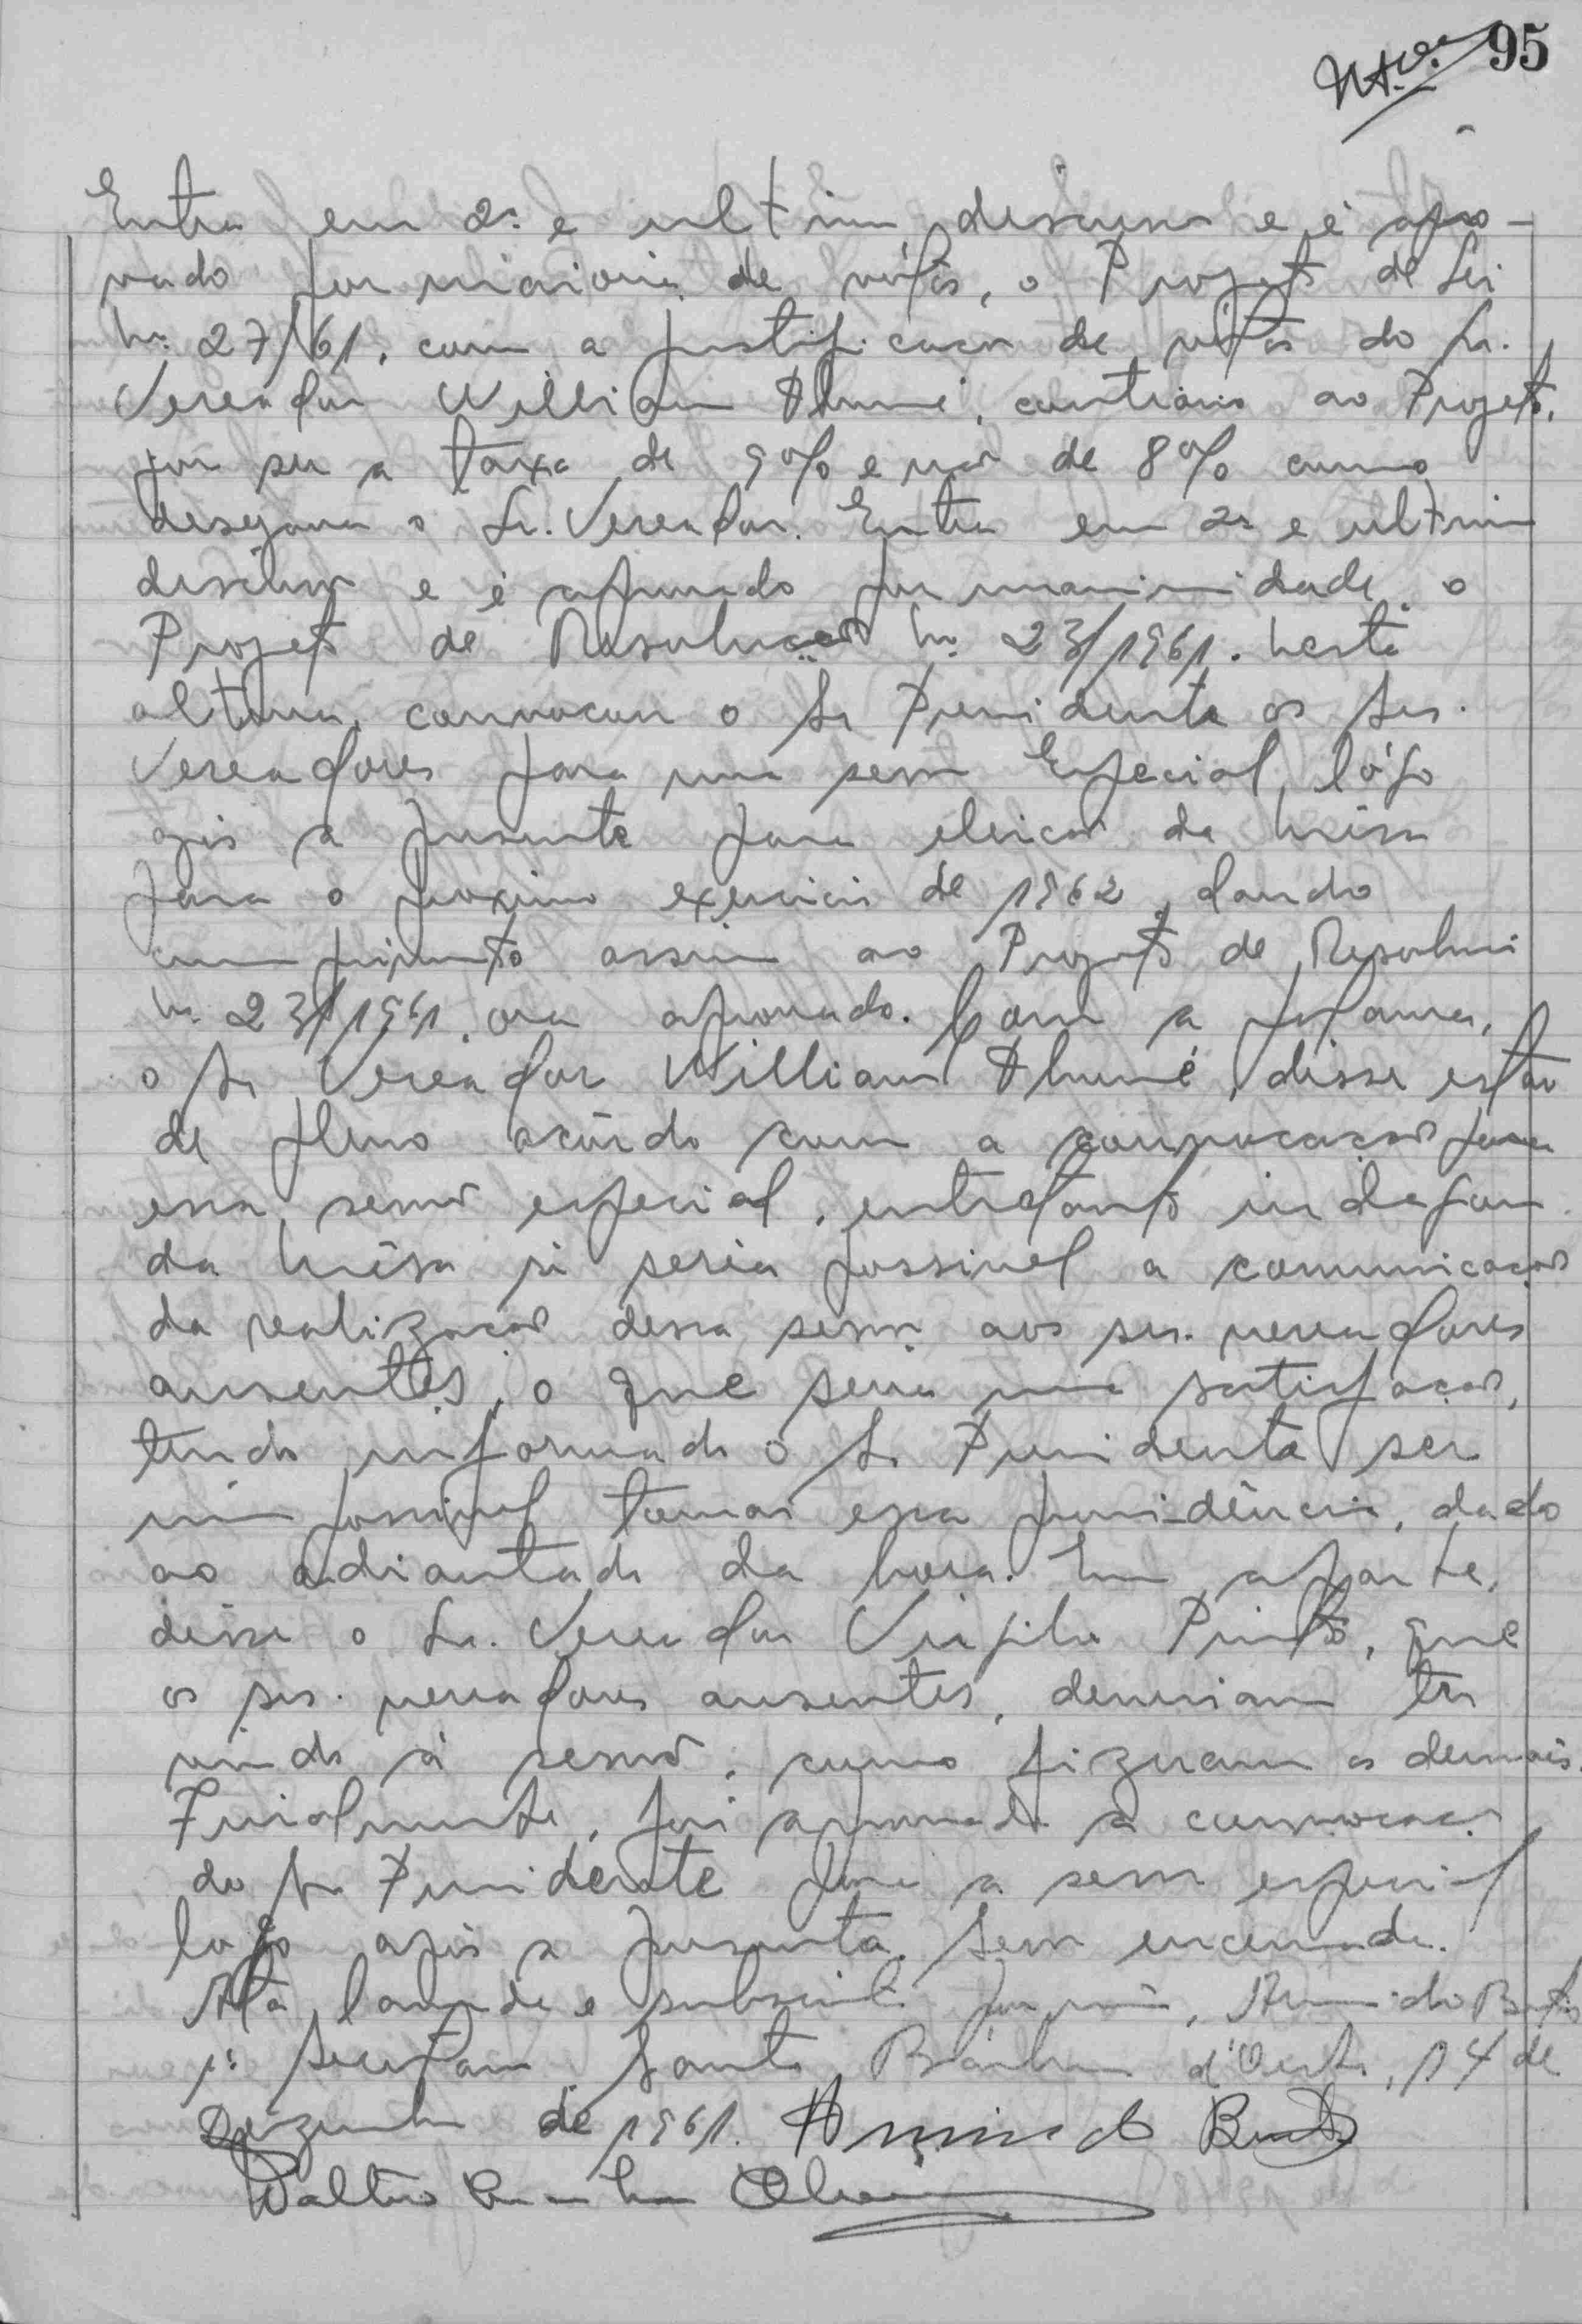 95
Entra em 2ª e ultima discussão e é apro-
vado por maioria de votos, o Projeto de Lei
nº 27/61, com a justificação de votos do Sr.
Vereador William Dhumé, contrário ao Projeto,
por ser a taxa de 9% e não de 8% como
desejava o Sr. Vereador. Entra em 2ª e ultima
discussão e é aprovado por unanimidade, o
Projeto de Resolução nº 23/1961. Nesta
altura, convocou o Sr Presidente os Srs.
Vereadores para uma sessão Especial, lógo
após a presente para eleição da Mêsa
para o proximo exercicio de 1962, dando
cumprimento assim ao Projeto de Resolução
nº 23/1961, ora aprovado. Com a palavra,
o Sr Vereador William Dhumé, disse estar
de pleno acôrdo com a convocação para
essa sessão especial, entretanto indagou
da Mêsa si seria possivel a comunicação
da realização dessa sessão aos srs. vereadores
ausentes, o que seria uma satisfação,
tendo informado o Sr Presidente ser
impossivel tomar essa providência, dado
ao adiantado da hora. Em aparte,
disse o Sr. Vereador Virgilio Pinto, que
os srs. vereadores ausentes, deveriam ter
vindo à sessão, como fizeram os demais.
Finalmente, foi aprovada a convocação
do Sr Presidente para a sessão especial
logo após a presente. Sessão encerrada.
Ata lavrada e subscrita por mim,
1º Secretario. Santa Bárbara d'Oeste, 14 de
Dezembro de 1961.